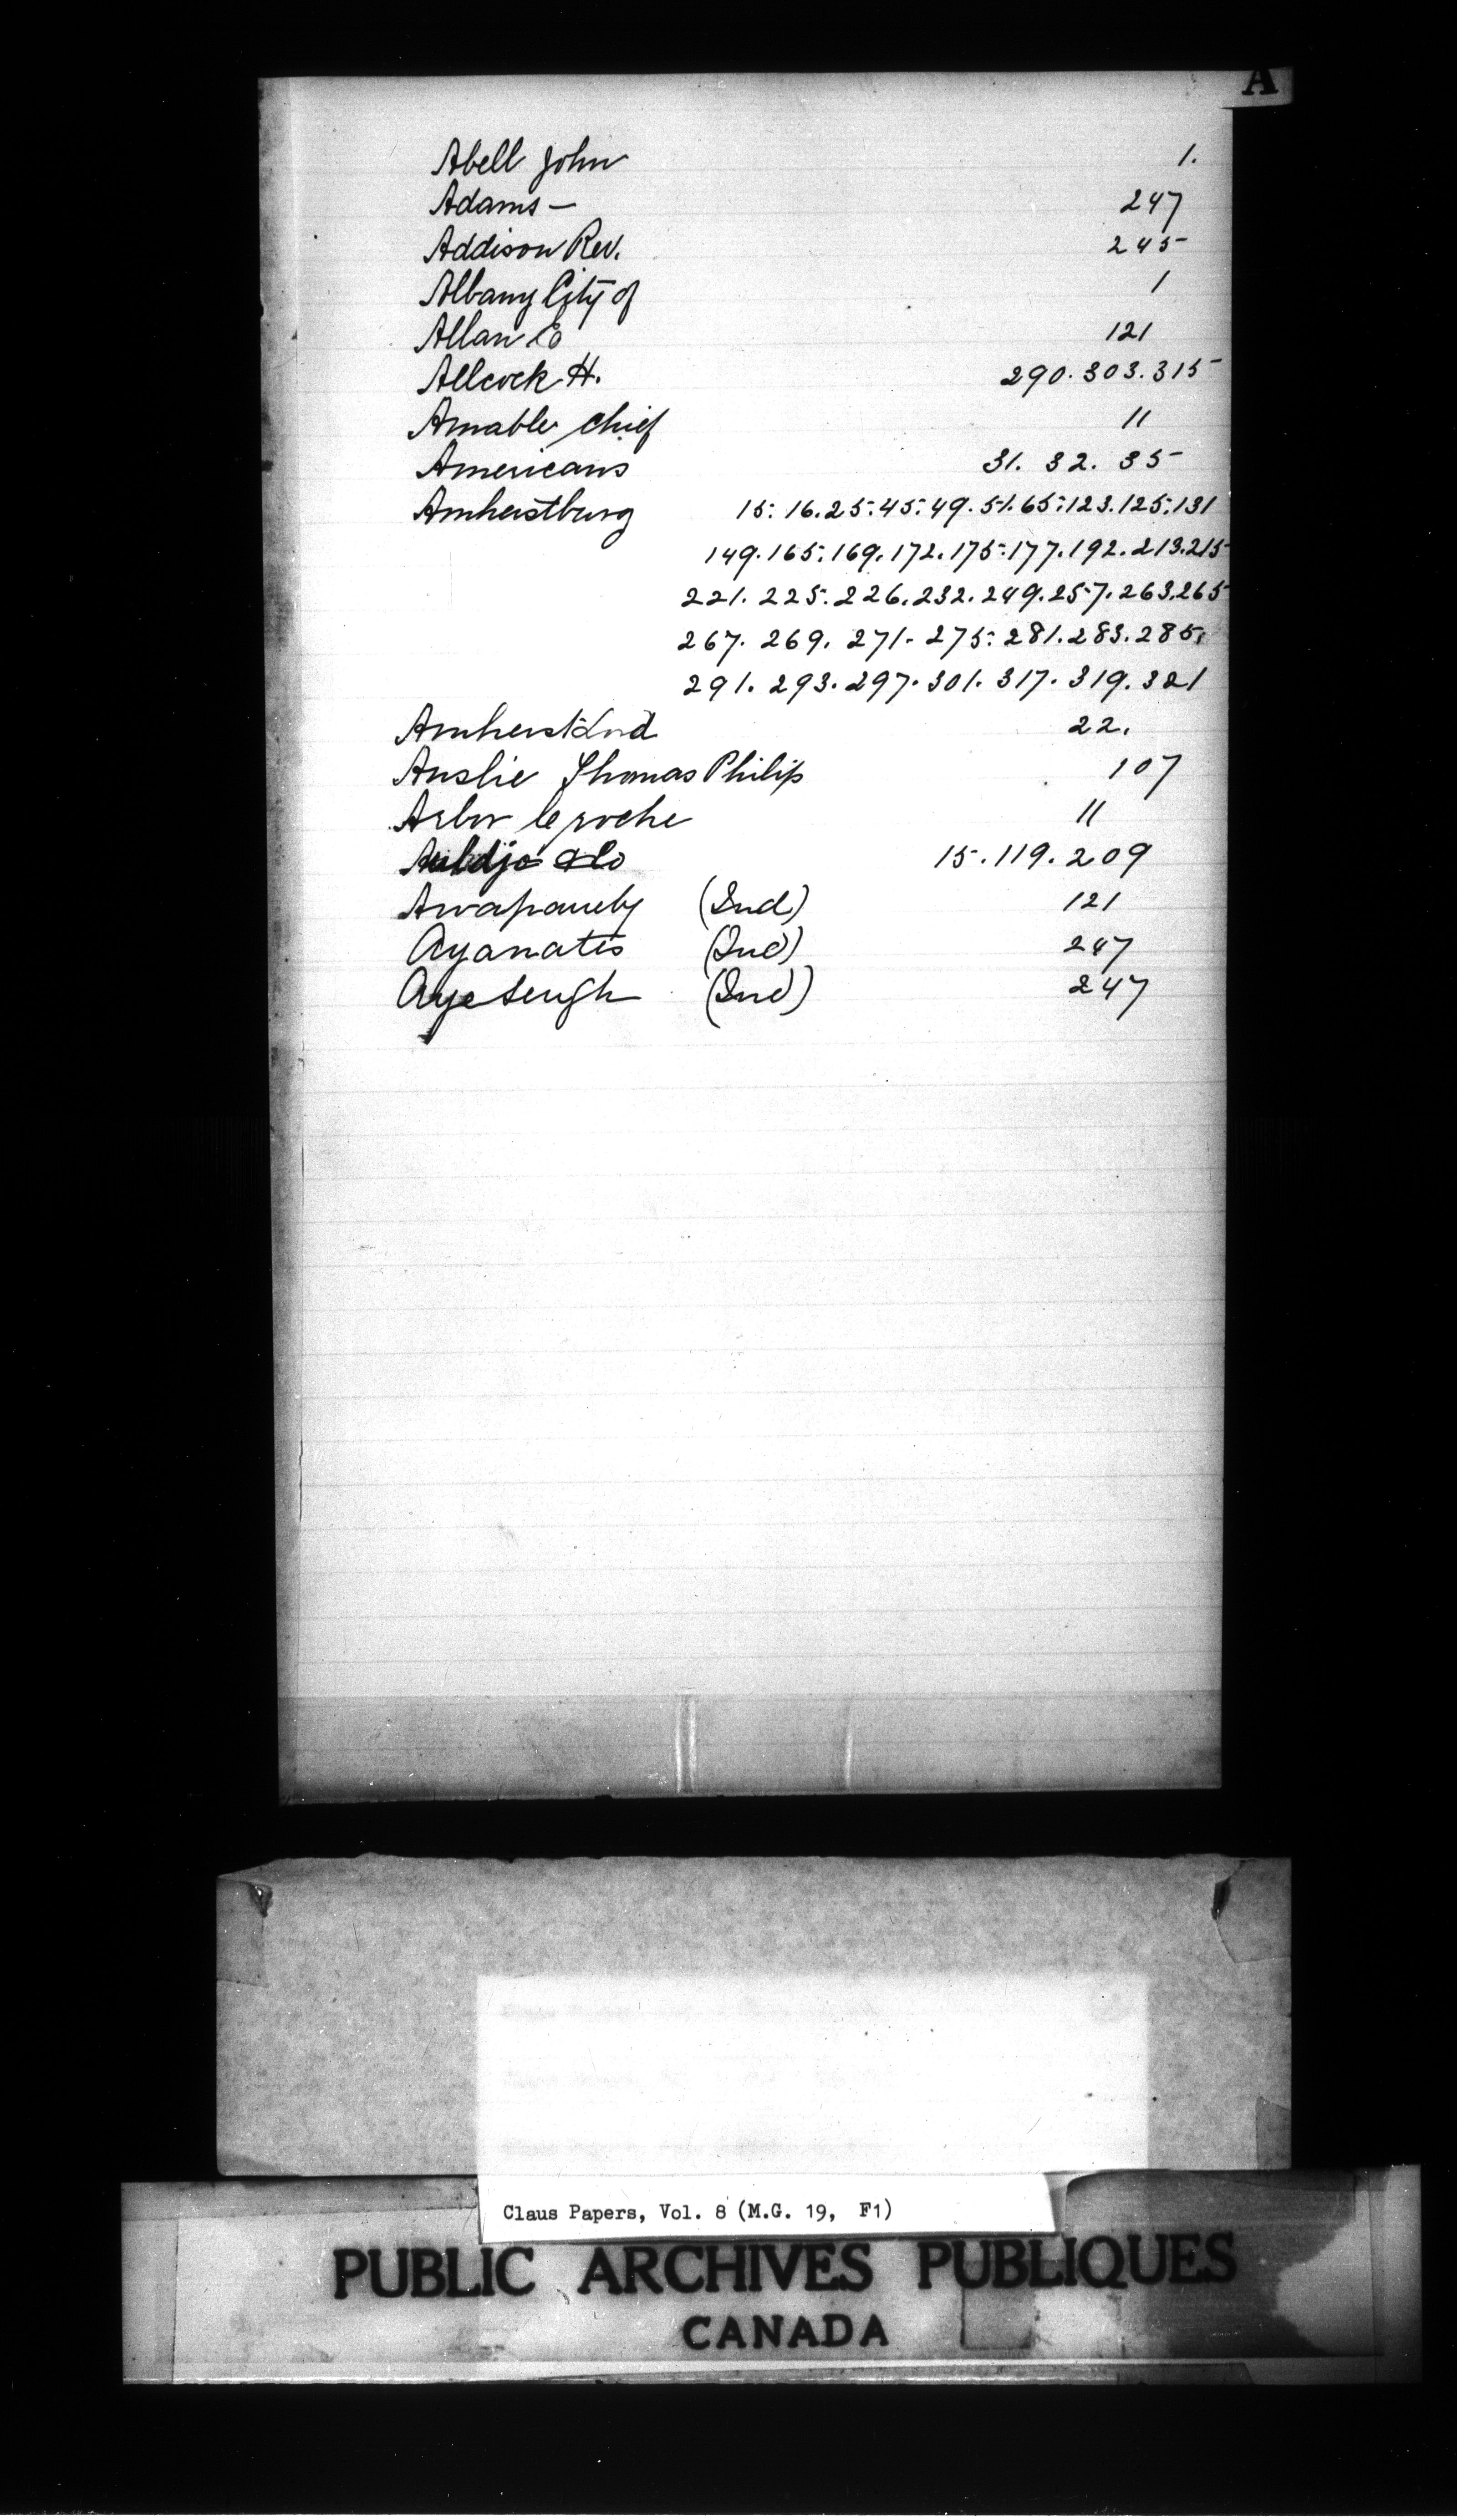 A
Abell John 1.
Adams — 247
Addison Rev. 245
Albany City of 1
Allan E 121
Allcock H. 290. 303. 315
Amable chief 11
Americans 31. 32. 35
Amherstburg 15. 16. 25. 45. 49. 51. 65. 123. 125. 131
149. 165. 169. 172. 175. 177. 192. 213. 215
221. 225. 226. 232. 249. 257. 263. 265
267. 269. 271. 275. 281. 283. 285.
291. 293. 297. 301. 317. 319. 321
Amherst Lord 22.
Anslie Thomas Philip 107
Arbor le roche 11
Auldjo & Co 15. 119. 209
Awapaneby (Ind) 121
Ayanatis (Ind) 247
Ayetengh (Ind) 247
Claus Papers, Vol. 8 (M.G. 19, F1)
PUBLIC ARCHIVES PUBLIQUES
CANADA